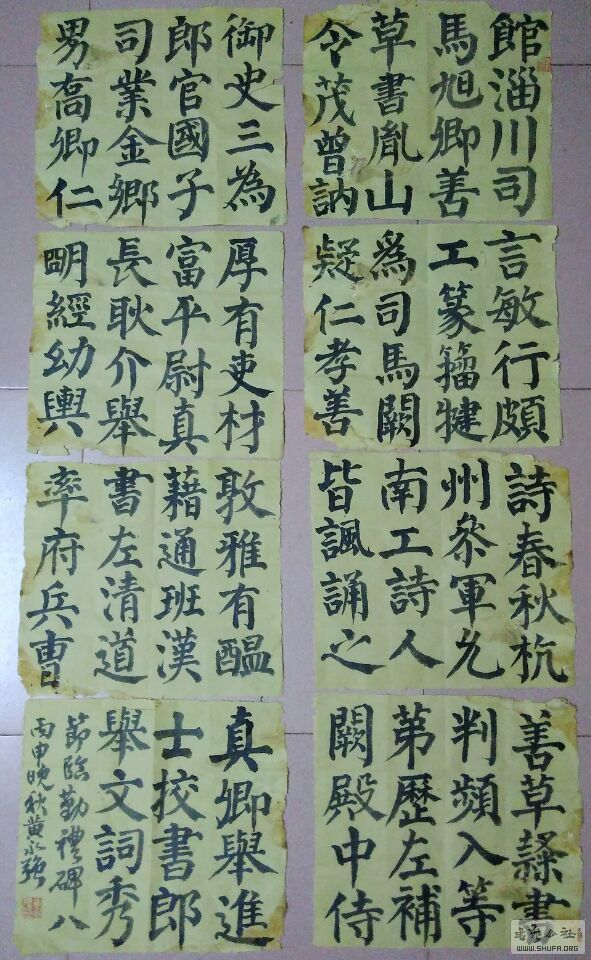 館淄川司
馬旭卿善
草書胤山
令茂曾訥
言敏行頗
工篆籀犍
爲司馬闕
疑仁孝善
詩春秋杭
州叅軍允
南工詩人
皆諷誦之
善草隸書
判頻入等
苐歷左補
闕殿中侍
御史三為
郎官國子
司業金鄉
男喬卿仁
厚有吏材
富平尉真
長耿介舉
明經幼輿
敦雅有醖
藉通班漢
書左清道
率府兵曹
真卿舉進
士挍書郎
舉文詞秀
節臨勤禮碑八
丙申晚秋黄永強
WWW.SHUFA.ORG